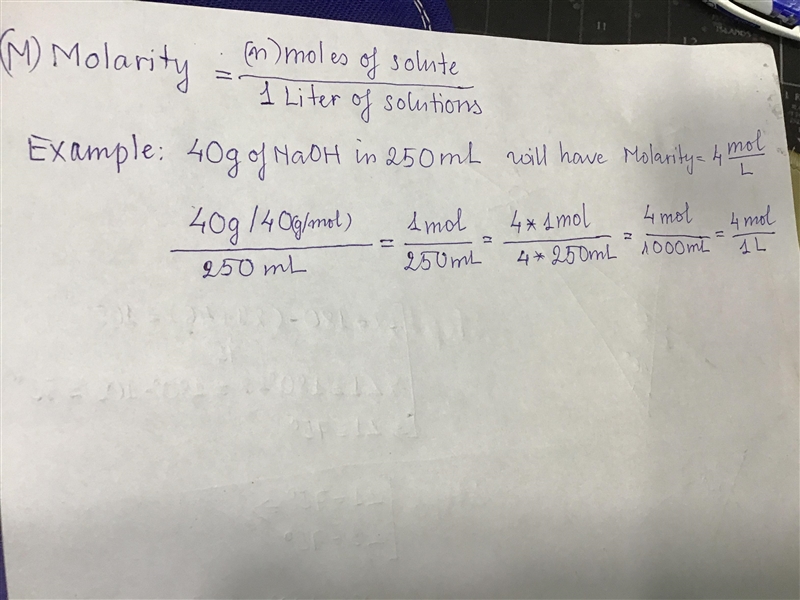 (M) Molarity = (n) moles of solute / 1 Liter of solutions
Example: 40g of NaOH in 250mL will have Molarity = 4 mol/L
40g / 40(g/mol) / 250 mL = 1 mol / 250 mL = 4 * 1 mol / 4 * 250 mL = 4 mol / 1000 mL = 4 mol / 1 L